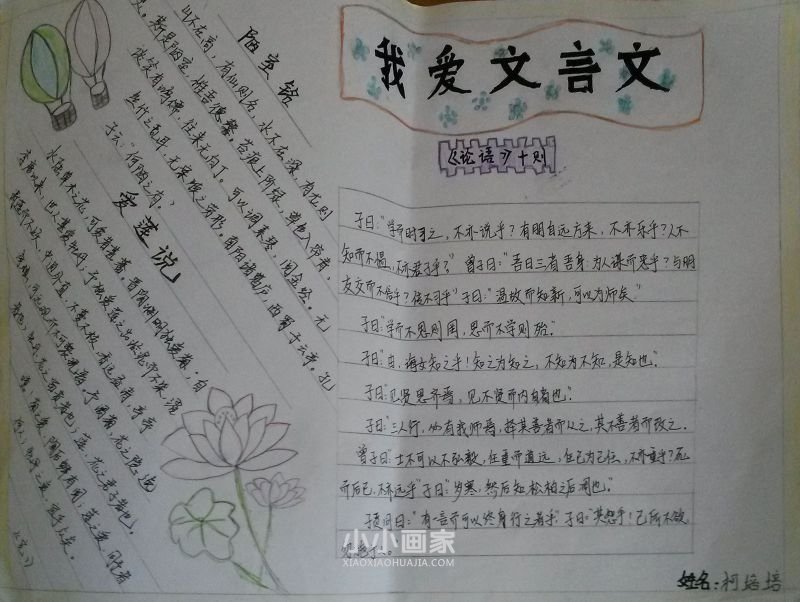 我爱文言文
《论语》十则
子曰:“学而时习之,不亦说乎?有朋自远方来,不亦乐乎?人不
知而不愠,不亦君子乎?”曾子曰:“吾日三省吾身:为人谋而忠乎?与朋
友交而不信乎?传不习乎”子曰:“温故而知新,可以为师矣”
子曰:“学而不思则罔,思而不学则殆。
子曰:“由,诲女知之乎!知之为知之,不知为不知,是知也。”
子曰:“见贤思齐焉,见不贤而内自省也”。
子曰:“三人行,必有我师焉,择其善者而从之,其不善者而改之。
曾子曰:“士不可以不弘毅,任重而道远,仁已为己任,不亦重乎?死
而后已,不亦远乎”子曰:“岁寒,然后知松柏之后凋也。”
子贡问曰:“有一言而可以终身行之者乎”子曰:“其恕乎!己所不欲
勿施于人。
姓名:柯培培
陋室铭
山不在高,有仙则名,水不在深,有龙则
灵。斯是陋室,惟吾德馨。苔痕上阶绿,草色入帘青。
谈笑有鸿儒,往来无白丁。可以调素琴,阅金经。无
丝竹之乱耳,无案牍之劳形。南阳诸葛庐,西蜀子云亭。孔
子云:“何陋之有?
爱莲说
水陆草木之花,可爱者甚蕃。晋陶渊明独爱菊。自
李唐来,世人甚爱牡丹。予独爱莲之出淤泥而不染,濯
清涟而不妖,中通外直,不蔓不枝,香远益清,亭亭
小小画家
XIAOXIAOHUAJIA.COM